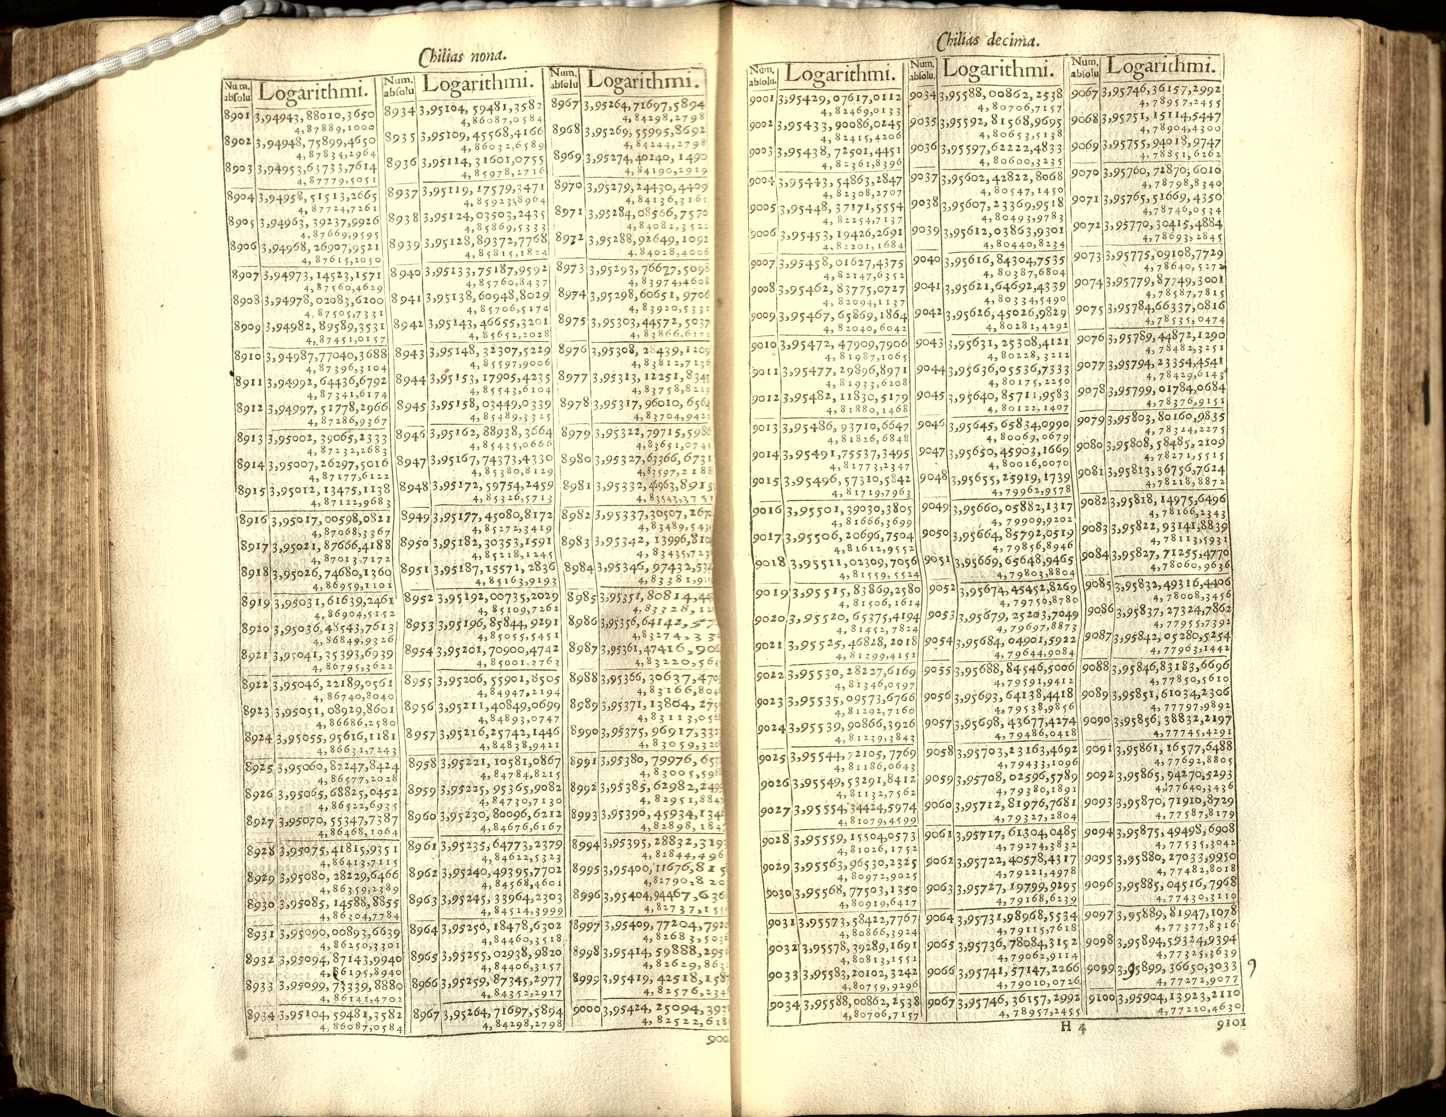 Chilias nona.
Num. absolu Logarithmi.
8901 3,94943,88010,3650
4,87889,1000
8902 3,94948,75899,4650
4,87834,2964
8903 3,94953,63733,7614
4,87779,5051
8904 3,94958,51513,2665
4,87724,7261
8905 3,94963,39237,9926
4,87669,9595
8906 3,94968,26907,9521
4,87615,2050
8907 3,94973,14523,1571
4,87560,4629
8908 3,94978,02083,6200
4,87505,7331
8909 3,94982,89589,3531
4,87451,0157
8910 3,94987,77040,3688
4,87396,3104
8911 3,94992,64436,6792
4,87341,6174
8912 3,94997,51778,2966
4,87286,9367
8913 3,95002,39065,2333
4,87232,2683
8914 3,95007,26297,5016
4,87177,6122
8915 3,95012,13475,1138
4,87122,9683
8916 3,95017,00598,0821
4,87068,3367
8917 3,95021,87666,4188
4,87013,7172
8918 3,95026,74680,1360
4,86959,1101
8919 3,95031,61639,2461
4,86904,5152
8920 3,95036,48543,7613
4,86849,9326
8921 3,95041,35393,6939
4,86795,3622
8922 3,95046,22189,0561
4,86740,8040
8923 3,95051,08929,8601
4,86686,2580
8924 3,95055,95616,1181
4,86631,7243
8925 3,95060,82247,8424
4,86577,2028
8926 3,95065,68825,0452
4,86522,6935
8927 3,95070,55347,7387
4,86468,1964
8928 3,95075,41815,9351
4,86413,7115
8929 3,95080,28229,6466
4,86359,2389
8930 3,95085,14588,8855
4,86304,7784
8931 3,95090,00893,6639
4,86250,3301
8932 3,95094,87143,9940
4,86195,8940
8933 3,95099,73339,8880
4,86141,4702
8934 3,95104,59481,3582
4,86087,0584
Num. absolu Logarithmi.
8934 3,95104,59481,3582
4,86087,0584
8935 3,95109,45568,4166
4,86032,6589
8936 3,95114,31601,0755
4,85978,2716
8937 3,95119,17579,3471
4,85923,8964
8938 3,95124,03503,2435
4,85869,5333
8939 3,95128,89372,7768
4,85815,1824
8940 3,95133,75187,9592
4,85760,8437
8941 3,95138,60948,8029
4,85706,5172
8942 3,95143,46655,3201
4,85652,2028
8943 3,95148,32307,5229
4,85597,9006
8944 3,95153,17905,4235
4,85543,6104
8945 3,95158,03449,0339
4,85489,3325
8946 3,95162,88938,3664
4,85435,0666
8947 3,95167,74373,4330
4,85380,8129
8948 3,95172,59754,2459
4,85326,5713
8949 3,95177,45080,8172
4,85272,3419
8950 3,95182,30353,1591
4,85218,1245
8951 3,95187,15571,2836
4,85163,9193
8952 3,95192,00735,2029
4,85109,7262
8953 3,95196,85844,9291
4,85055,5451
8954 3,95201,70900,4742
4,85001,3763
8955 3,95206,55901,8505
4,84947,2194
8956 3,95211,40849,0699
4,84893,0747
8957 3,95216,25742,1446
4,84838,9421
8958 3,95221,10581,0867
4,84784,8215
8959 3,95225,95365,9082
4,84730,7130
8960 3,95230,80096,6212
4,84676,6167
8961 3,95235,64773,2379
4,84622,5323
8962 3,95240,49395,7702
4,84568,4601
8963 3,95245,33964,2303
4,84514,3999
8964 3,95250,18478,6302
4,84460,3518
8965 3,95255,02938,9820
4,84406,3157
8966 3,95259,87345,2977
4,84352,2917
8967 3,95264,71697,5894
4,84298,2798
Num. absolu Logarithmi.
8967 3,95264,71697,5894
4,84298,2798
8968 3,95269,55995,8692
4,84244,2798
8969 3,95274,40240,1490
4,84190,2919
8970 3,95279,24430,4409
4,84136,3161
8971 3,95284,08566,7570
4,84082,3522
8972 3,95288,92649,1092
4,84028,4006
8973 3,95293,76677,5098
4,83974,4608
8974 3,95298,60651,9706
4,83920,5331
8975 3,95303,44572,5037
4,83866,617
8976 3,95308,28439,1209
4,83812,7136
8977 3,95313,12251,834
4,83758,82
8978 3,95317,96010,656
4,83704,942
8979 3,95322,79715,598
4,83651,074
8980 3,95327,63366,673
4,83597,218
8981 3,95332,46963,891
4,83543,375
8982 3,95337,30507,267
4,83489,543
8983 3,95342,13996,810
4,83435,723
8984 3,95346,97432,534
4,83381,91
8985 3,95351,80814,44
4,83328,12
8986 3,95356,64142,57
4,83274,33
8987 3,95361,47416,90
4,83220,56
8988 3,95366,30637,470
4,83166,804
8989 3,95371,13804,27
4,83113,05
8990 3,95375,96917,33
4,83059,320
8991 3,95380,79976,65
4,83005,598
8992 3,95385,62982,249
4,82951,884
8993 3,95390,45934,134
4,82898,184
8994 3,95395,28832,319
4,82844,496
8995 3,95400,11676,815
4,82790,820
8996 3,95404,94467,636
4,82737,155
8997 3,95409,77204,792
4,82683,503
8998 3,95414,59888,295
4,82629,863
8999 3,95419,42518,158
4,82576,234
9000 3,95424,25094,393
4,82522,618
900
Chilias decima.
Num. absolu. Logarithmi.
9001 3,95429,07617,0112
4,82469,0133
9002 3,95433,90086,0245
4,82415,4206
9003 3,95438,72501,4451
4,82361,8396
9004 3,95443,54863,2847
4,82308,2707
9005 3,95448,37171,5554
4,82254,7137
9006 3,95453,19426,2691
4,82201,1684
9007 3,95458,01627,4375
4,82147,6352
9008 3,95462,83775,0727
4,82094,1137
9009 3,95467,65869,1864
4,82040,6042
9010 3,95472,47909,7906
4,81987,1065
9011 3,95477,29896,8971
4,81933,6208
9012 3,95482,11830,5179
4,81880,1468
9013 3,95486,93710,6647
4,81826,6848
9014 3,95491,75537,3495
4,81773,2347
9015 3,95496,57310,5842
4,81719,7963
9016 3,95501,39030,3805
4,81666,3699
9017 3,95506,20696,7504
4,81612,9552
9018 3,95511,02309,7056
4,81559,5524
9019 3,95515,83869,2580
4,81506,1614
9020 3,95520,65375,4194
4,81452,7824
9021 3,95525,46828,2018
4,81399,4151
9022 3,95530,28227,6169
4,81346,0597
9023 3,95535,09573,6766
4,81292,7160
9024 3,95539,90866,3926
4,81239,3843
9025 3,95544,72105,7769
4,81186,0643
9026 3,95549,53291,8412
4,81132,7562
9027 3,95554,34424,5974
4,81079,4599
9028 3,95559,15504,0573
4,81026,1752
9029 3,95563,96530,2325
4,80972,9025
9030 3,95568,77503,1350
4,80919,6417
9031 3,95573,58422,7767
4,80866,3924
9032 3,95578,39289,1691
4,80813,1551
9033 3,95583,20102,3242
4,80759,9296
9034 3,95588,00862,2538
4,80706,7157
Num. absolu. Logarithmi.
9034 3,95588,00862,2538
4,80706,7157
9035 3,95592,81568,9695
4,80653,5138
9036 3,95597,62222,4833
4,80600,3235
9037 3,95602,42822,8068
4,80547,1450
9038 3,95607,23369,9518
4,80493,9783
9039 3,95612,03863,9301
4,80440,8234
9040 3,95616,84304,7535
4,80387,6804
9041 3,95621,64692,4339
4,80334,5490
9042 3,95626,45026,9829
4,80281,4292
9043 3,95631,25308,4121
4,80228,3212
9044 3,95636,05536,7333
4,80175,2250
9045 3,95640,85711,9583
4,80122,1407
9046 3,95645,65834,0990
4,80069,0679
9047 3,95650,45903,1669
4,80016,0070
9048 3,95655,25919,1739
4,79962,9578
9049 3,95660,05882,1317
4,79909,9202
9050 3,95664,85792,0519
4,79856,8946
9051 3,95669,65648,9465
4,79803,8804
9052 3,95674,45452,8269
4,79750,8780
9053 3,95679,25203,7049
4,79697,8873
9054 3,95684,04901,5922
4,79644,9084
9055 3,95688,84546,5006
4,79591,9412
9056 3,95693,64138,4418
4,79538,9856
9057 3,95698,43677,4274
4,79486,0418
9058 3,95703,23163,4692
4,79433,1096
9059 3,95708,02596,5789
4,79380,1891
9060 3,95712,81976,7681
4,79327,2804
9061 3,95717,61304,0485
4,79274,3832
9062 3,95722,40578,4317
4,79221,4978
9063 3,95727,19799,9295
4,79168,6239
9064 3,95731,98968,5534
4,79115,7618
9065 3,95736,78084,3152
4,79062,9114
9066 3,95741,57147,2266
4,79010,0726
9067 3,95746,36157,2992
4,78957,2455
Num. absolu. Logarithmi.
9067 3,95746,36157,2992
4,78957,2455
9068 3,95751,15114,5447
4,78904,4300
9069 3,95755,94018,9747
4,78851,6262
9070 3,95760,72870,6010
4,78798,8340
9071 3,95765,51669,4350
4,78746,0534
9072 3,95770,30415,4884
4,78693,2845
9073 3,95775,09108,7729
4,78640,5272
9074 3,95779,87749,3001
4,78587,7815
9075 3,95784,66337,0816
4,78535,0474
9076 3,95789,44872,1290
4,78482,3251
9077 3,95794,23354,4541
4,78429,6143
9078 3,95799,01784,0684
4,78376,9151
9079 3,95803,80160,9835
4,78324,2275
9080 3,95808,58485,2109
4,78271,5515
9081 3,95813,36756,7624
4,78218,8872
9082 3,95818,14975,6496
4,78166,2343
9083 3,95822,93141,8839
4,78113,5931
9084 3,95827,71255,4770
4,78060,9636
9085 3,95832,49316,4406
4,78008,3456
9086 3,95837,27324,7862
4,77955,7392
9087 3,95842,05280,5254
4,77903,1442
9088 3,95846,83183,6696
4,77850,5610
9089 3,95851,61034,2306
4,77797,9892
9090 3,95856,38832,2197
4,77745,4291
9091 3,95861,16577,6488
4,77692,8805
9092 3,95865,94270,5293
4,77640,3436
9093 3,95870,71910,8729
4,77587,8179
9094 3,95875,49498,6908
4,77535,3042
9095 3,95880,27033,9950
4,77482,8018
9096 3,95885,04516,7968
4,77430,3110
9097 3,95889,81947,1078
4,77377,8316
9098 3,95894,59324,9394
4,77325,3639
9099 3,95899,36650,3033
4,77272,9077
9100 3,95904,13923,2110
4,77220,4630
H 4
9101